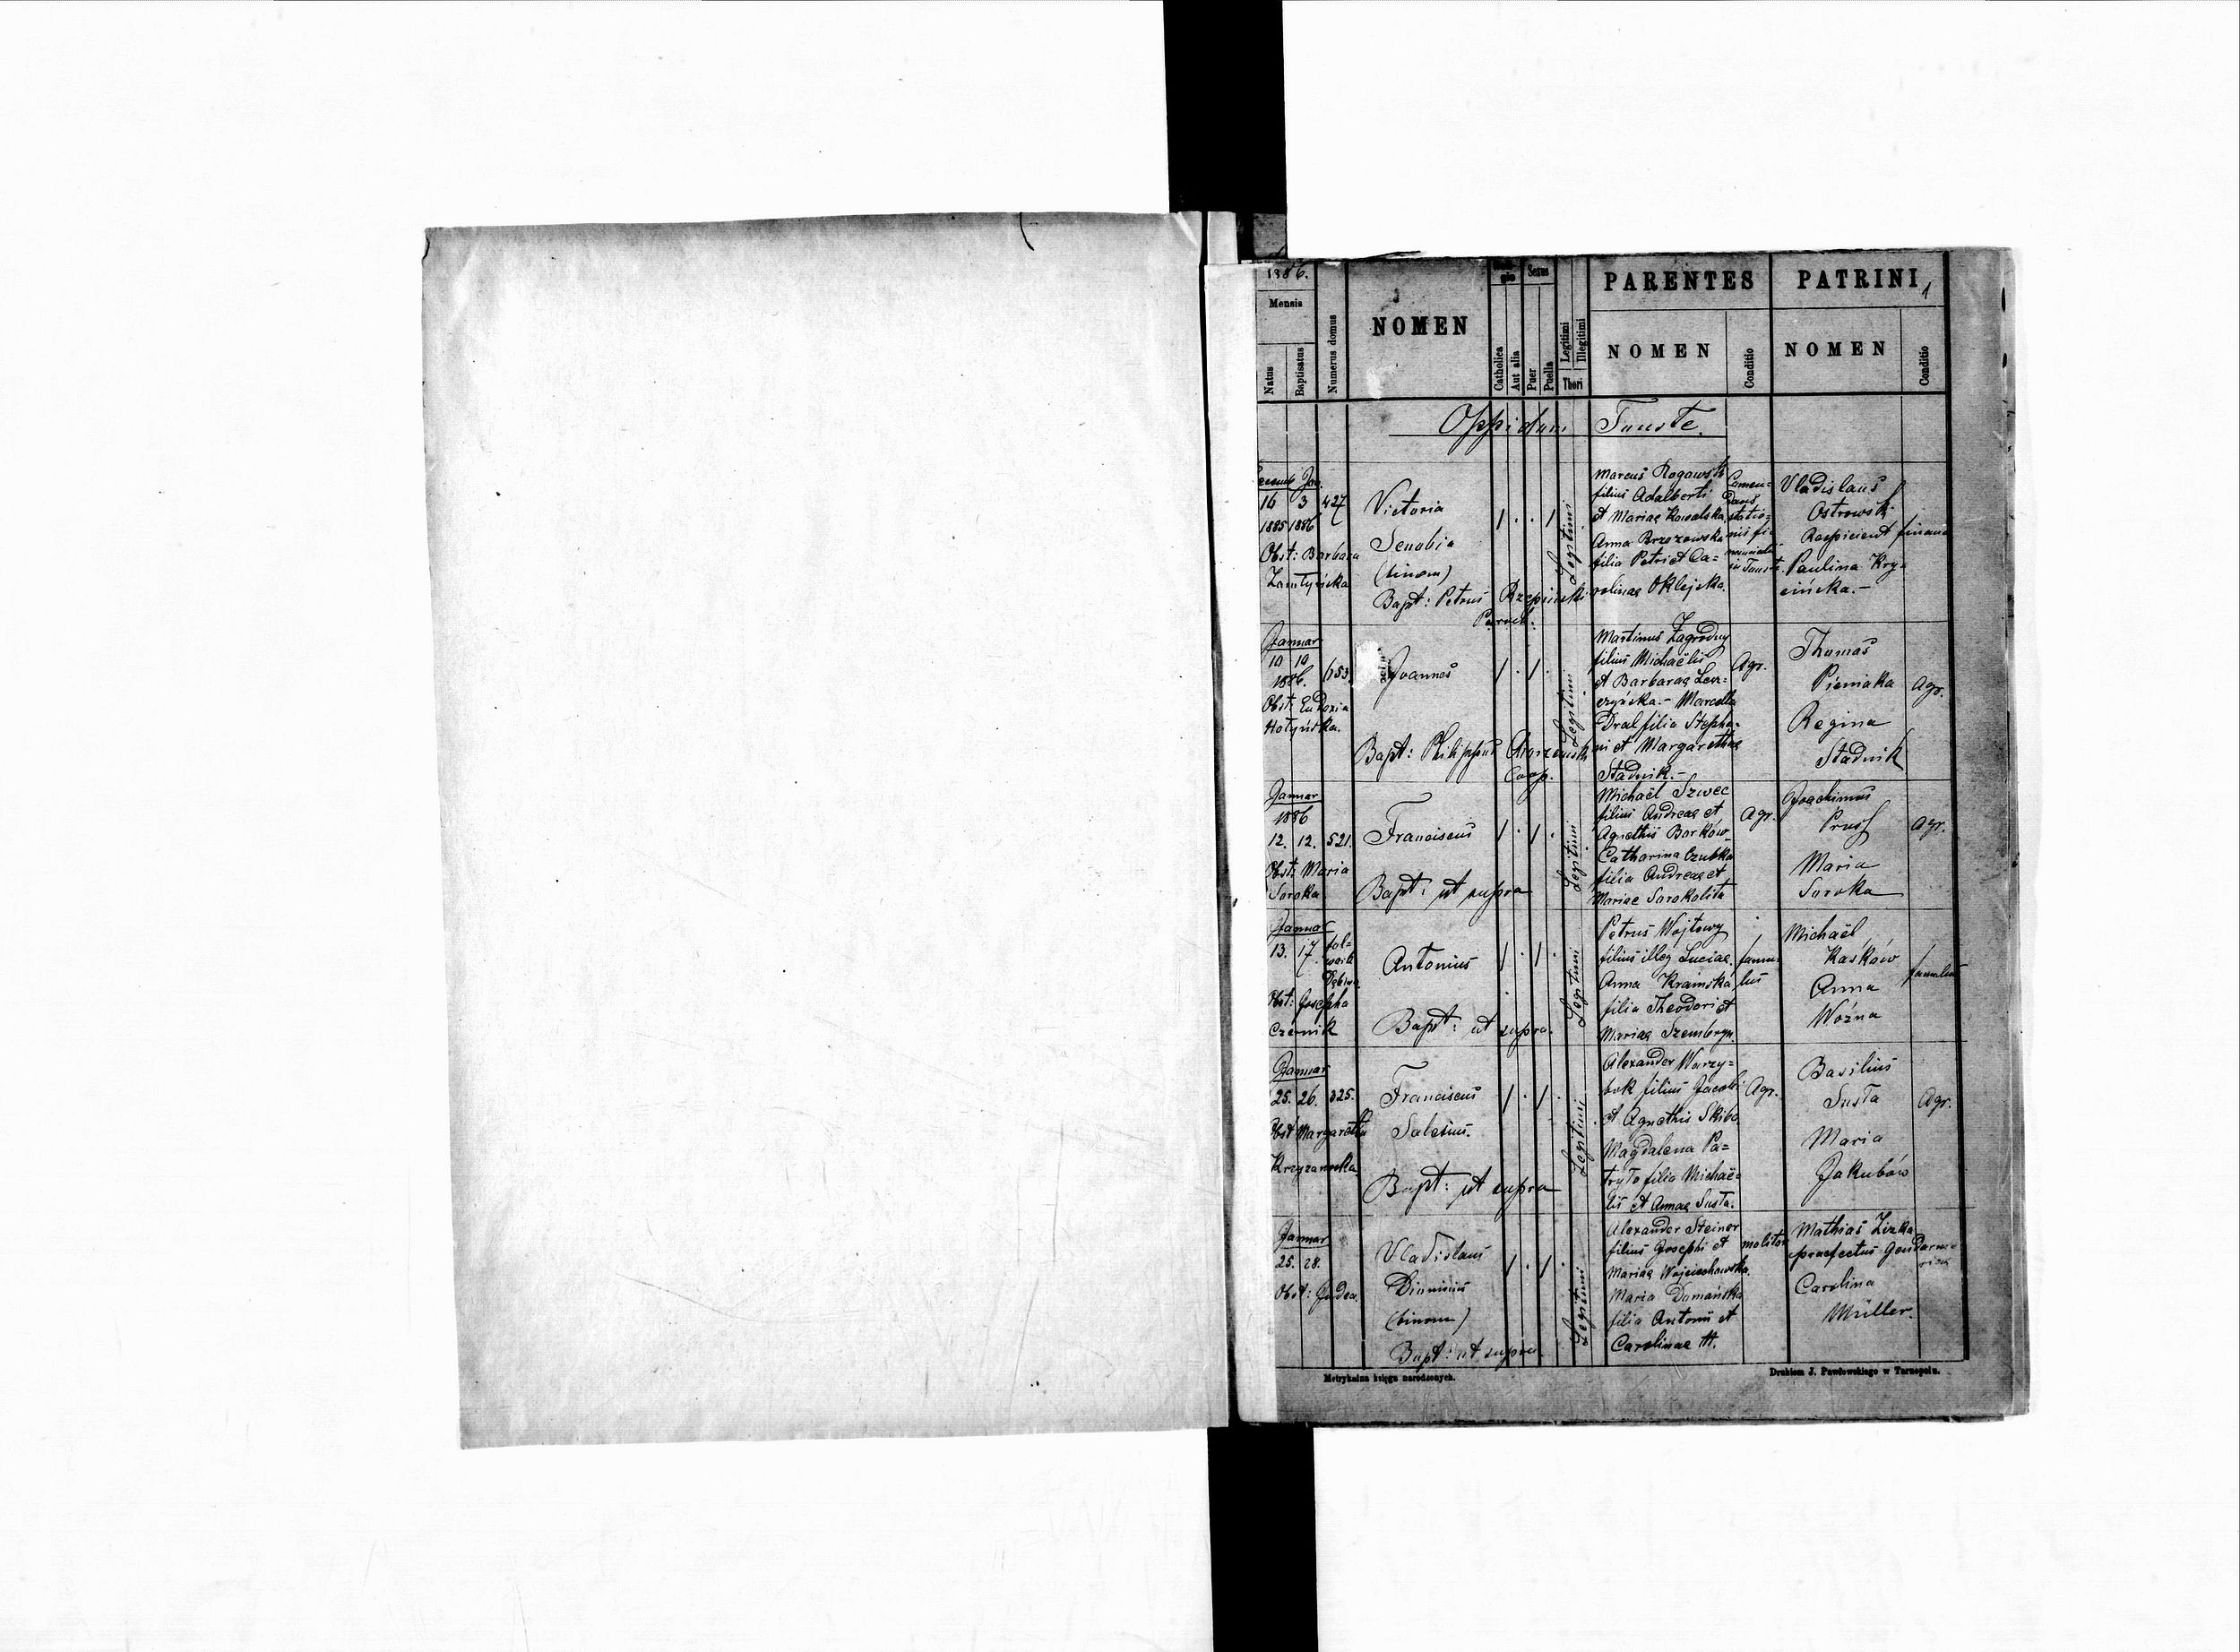 1886.
Mensis
Natus
Baptisatus
Numerus domus
NOMEN
Catholica
Aut alia
Sexus
Puer
Puella
Legitimi
Illegitimi
Thori
PARENTES
NOMEN
Conditio
PATRINI
1
NOMEN
Conditio
Oppidum Touste.
Jan.
16 3 427
1885 1886
Obst: Barbara
Victoria
Senobia
(binom)
Bapt: Petrus Rzepiński
Paroch.
Legitimi
Marcus Rogawski
filius Adalberti
et Mariae Kowalska
Anna Brzozowska
filia Petri et Ca=
rolinae Oklejska.
Vladislaus
Ostrowski
Respicient finan
Paulina Kry=
cińska.-
Januar
10 10 653.
1886.
Obst: Eudoxia
Hołyńska.
Joannes
Bapt: Philippus
Coop.
Legitimi
Martinus Zagrodny
filius Michaëlis
et Barbarae Lesz=
czyńska.- Marcella
Dral filia Stepha=
ni et Margarethae
Stadnik.-
Agr.
Thomas
Pieniaka
Regina
Stadnik
Agr.
Januar
1886
12. 12. 521.
Obst: Maria
Soroka
Franciscus
Bapt: ut supra
Legitimi
Michaël Szwec
filius Andreae et
Agnethis Borków
Catharina Czubka
filia Andreae et
Mariae Sorokolita
Agr.
Joachimus
Prus
Maria
Soroka
Agr.
Januar
13. 17. fol=
wark
Obst: Josepha
Czernik
Antonius
Bapt: ut supra.
Legitimi
Petrus Wojtowy
filius illeg Luciae.
Anna Kramska
filia Theodori et
Mariae
famu=
lus
Michaël
Kaśków
Anna
Woźna
famulus
Januar
25. 26. 325.
Obst Margaretha
Krzyżanowska
Franciscus
Salesius.
Bapt: ut supra
Legitimi
Alexander Warzy=
bok filius Jacobi
et Agnethis Skiba
Magdalena Pa=
tryło filia Michaë=
lis et Annae Susta.
Agr.
Basilius
Susta
Maria
Jakubów
Agr.
Januar
25. 28.
Obst: Judea.
Vladislaus
Dionisius
(binom)
Bapt: ut supra.
Legitimi
Alexander Steiner
filius Josephi et
Mariae Wojciechowska.
Maria Domańska
filia Antonii et
Carolinae H.
molitor
Mathias Zizka
praefectus Gendarme=
riae
Carolina
Müller.
Metrykalna księga narodzonych.
Drukiem J. Pawłowskiego w Tarnopolu.